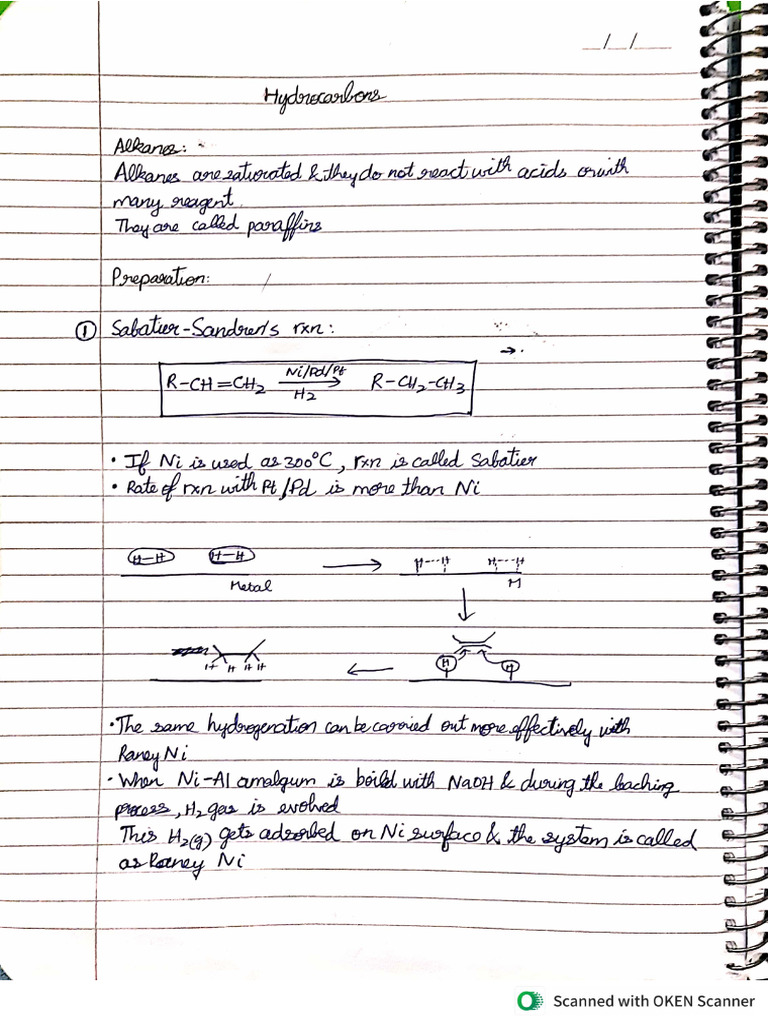 _/_/__
Hydrocarbons
Alkanes:
Alkanes are saturated & they do not react with acids or with
many reagent.
They are called paraffins
Preparation:
① Sabatier-Sandren's rxn:
R-CH=CH₂ Ni/Pd/Pt H₂ → R-CH₂-CH₃
• If Ni is used as 300°C, rxn is called Sabatier
• Rate of rxn with Pt/Pd is more than Ni
H-H H-H → H---H H---H
Metal M
H H H H ← H H
• The same hydrogenation can be carried out more effectively with
Raney Ni
• When Ni-Al amalgum is boild with NaOH & during the leaching
process, H₂ gas is evolved
This H₂(g) gets adsorbed on Ni surface & the system is called
as Raney Ni
Scanned with OKEN Scanner